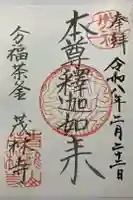 奉拝
令和八年二月二十二日
本尊釋迦如来
分福茶釜
茂林寺